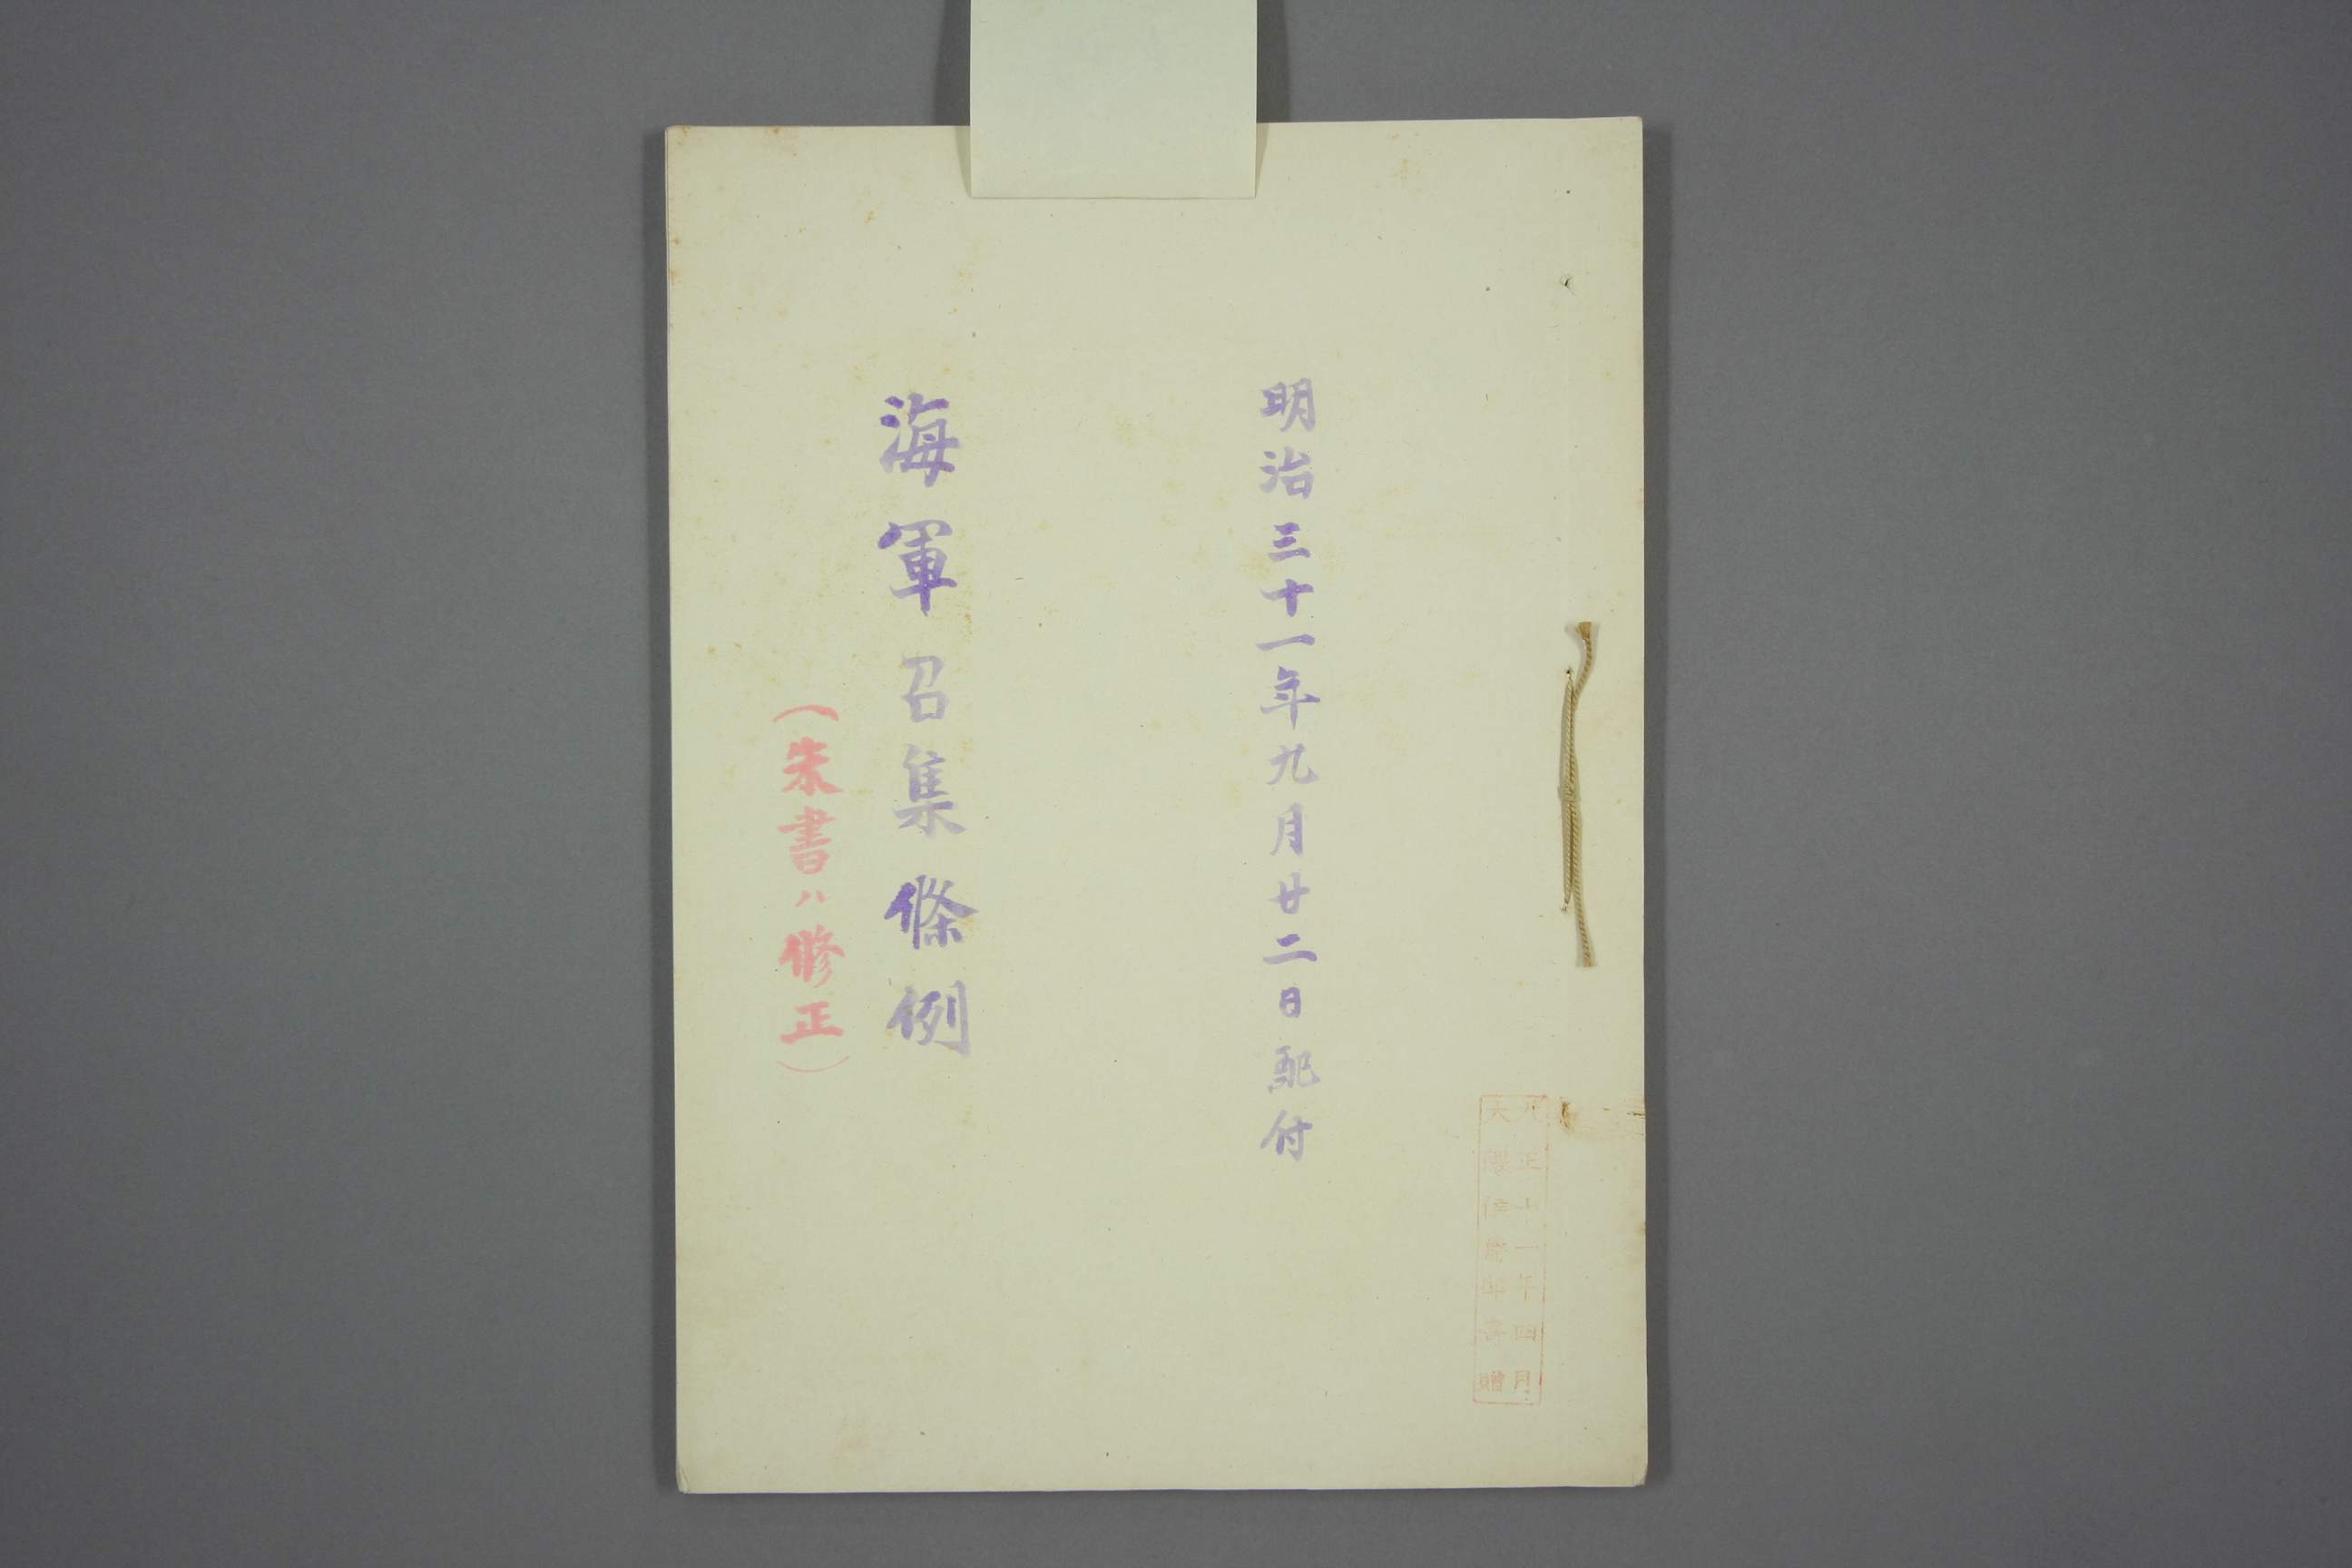 明治三十一年九月廿二日配付
海軍召集條例
(朱書ハ修正)
大正十一年四月
大隈侯爵家寄贈